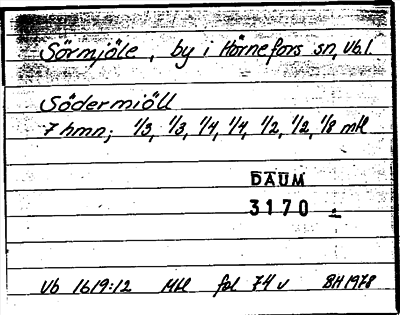 Sörmjöle, by i Hörnefors sn, Vb.l.
Södermiöll
7 hmn; 1/3, 1/3, 1/4, 1/4, 1/2, 1/2, 1/8 mtl
DAUM
3170 -
Vb 1619:12 Mtl fol 74 v BH 1978